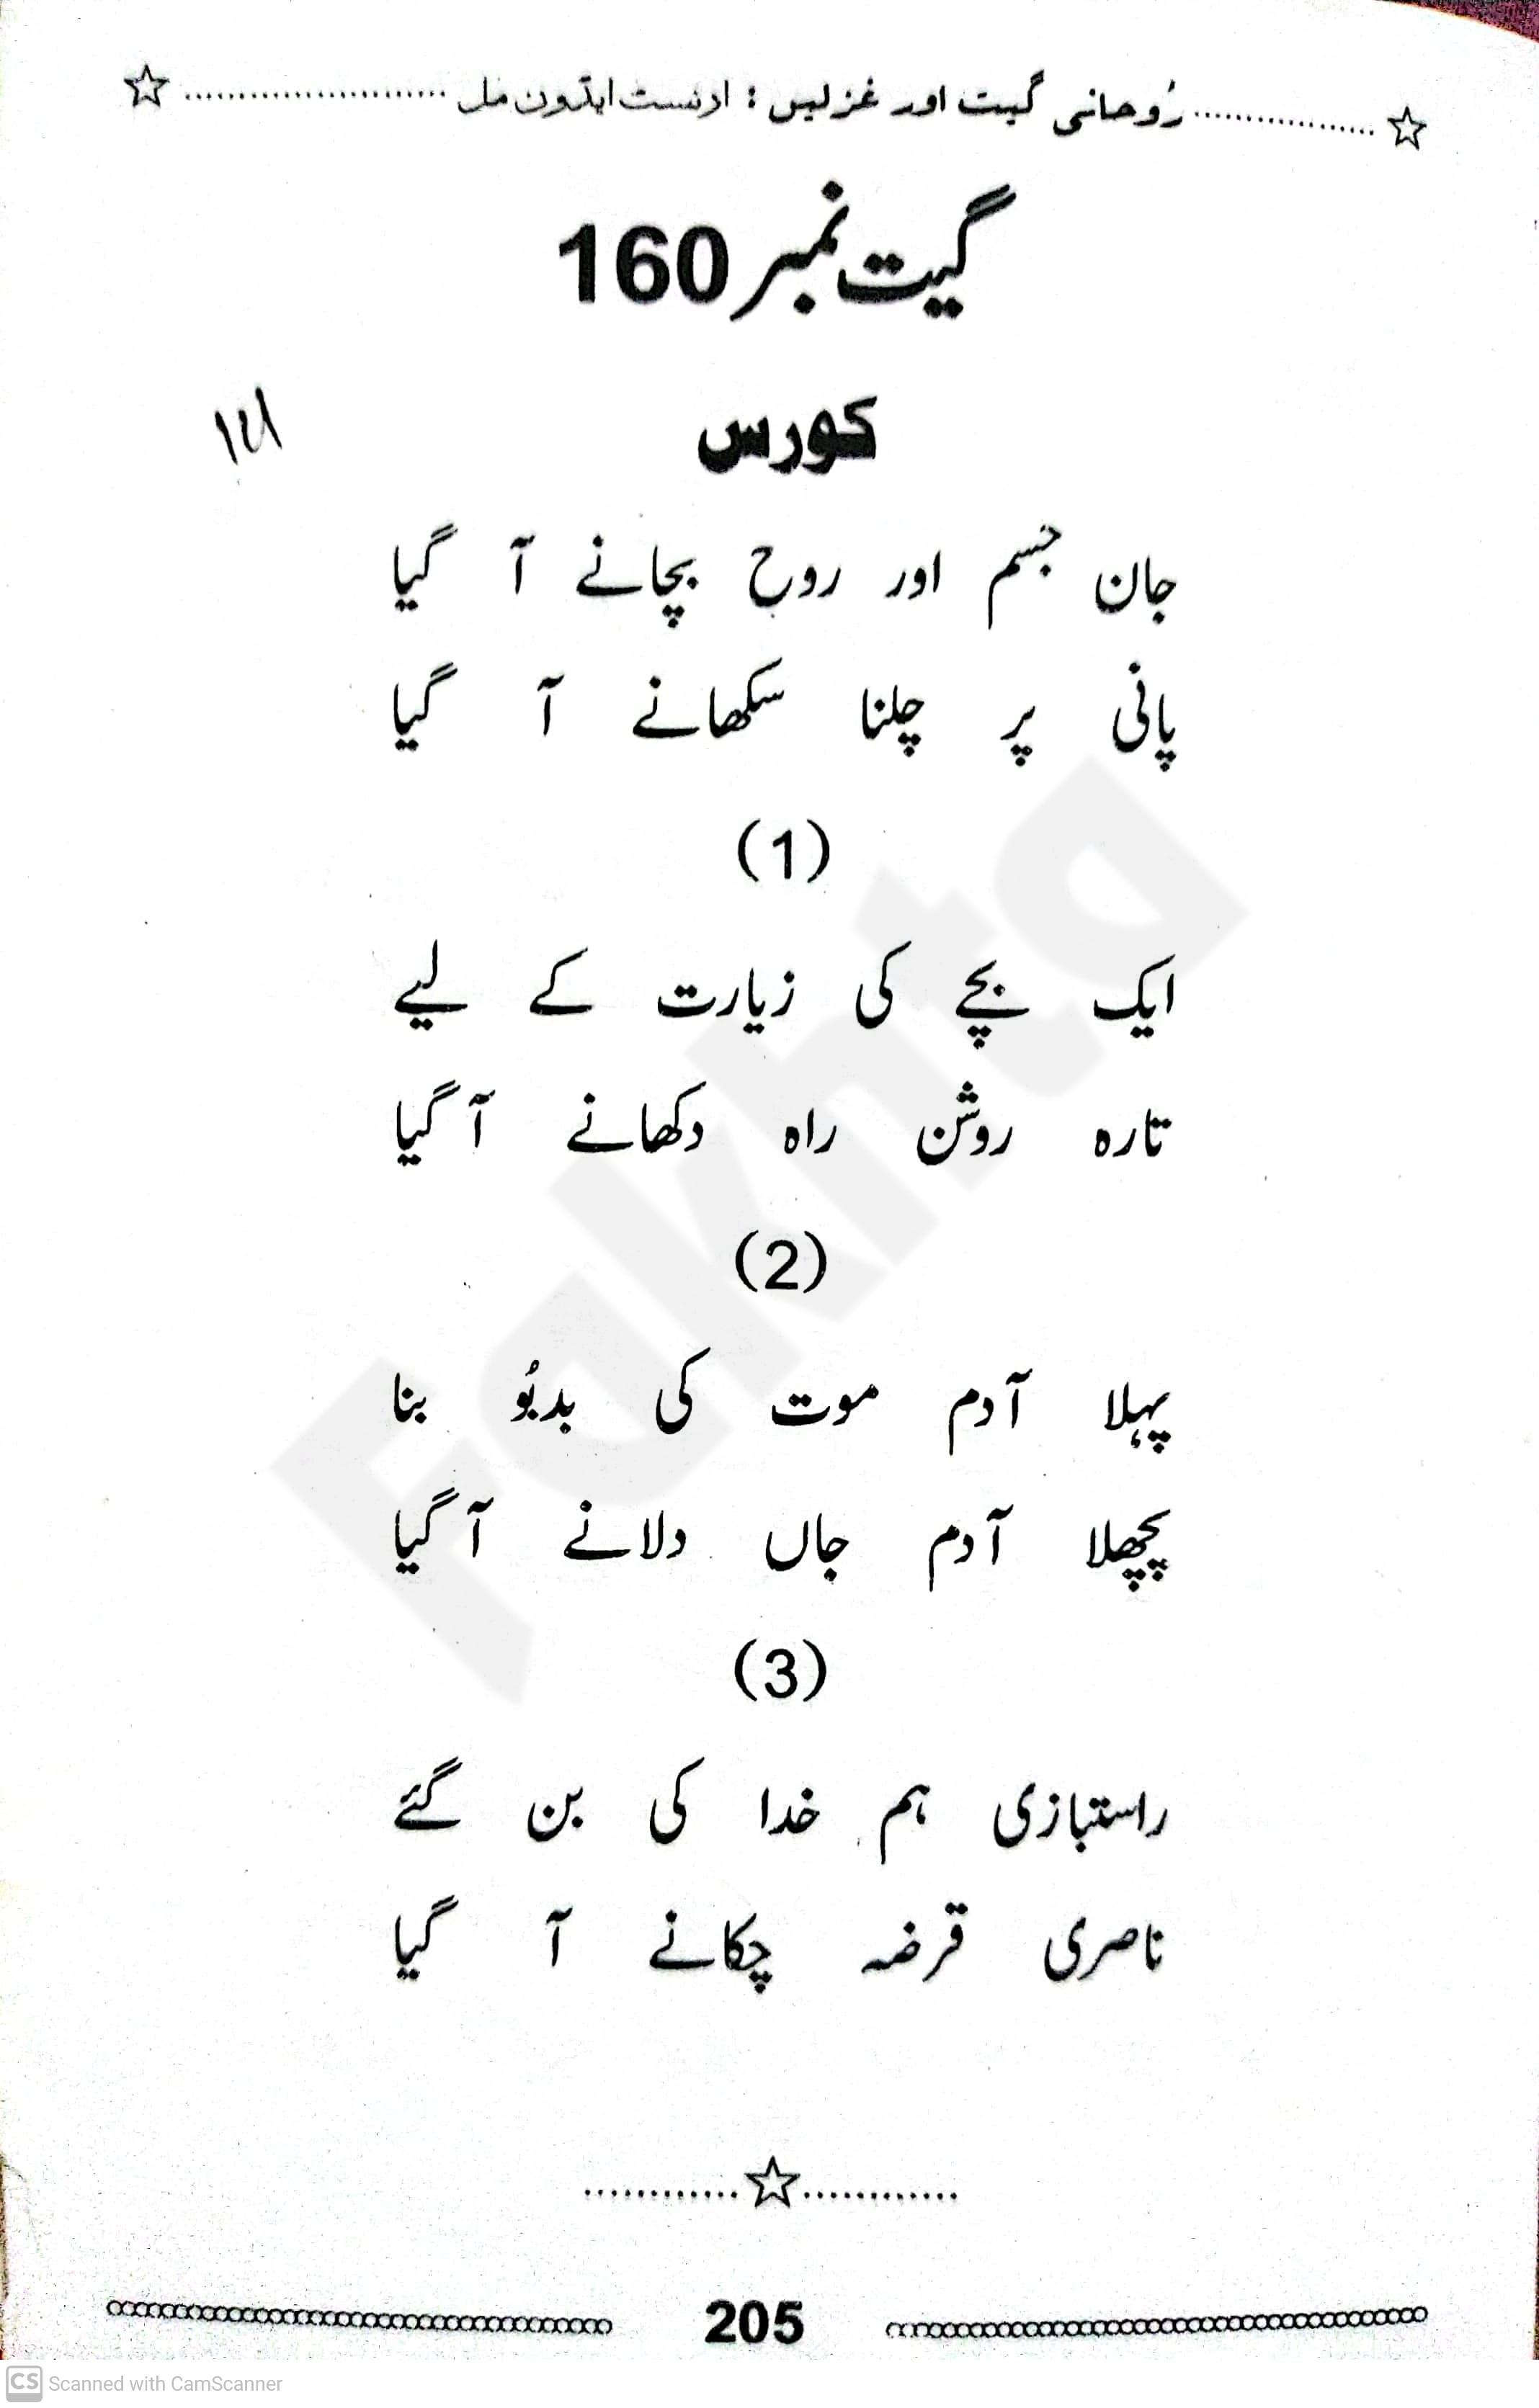 ☆..................رُوحانی گیت اور غزلیں : ارنسٹ ایڈون مل..........................☆
گیت نمبر 160
کورس
جان جسم اور روح بچانے آ گیا
پانی پر چلنا سکھانے آ گیا
(1)
ایک بچے کی زیارت کے لیے
تارہ روشن راہ دکھانے آ گیا
(2)
پہلا آدم موت کی بدبُو بنا
پچھلا آدم جاں دلانے آ گیا
(3)
راستبازی ہم خدا کی بن گئے
ناصری قرضہ چکانے آ گیا
............☆............
205
Fakhta
CS Scanned with CamScanner